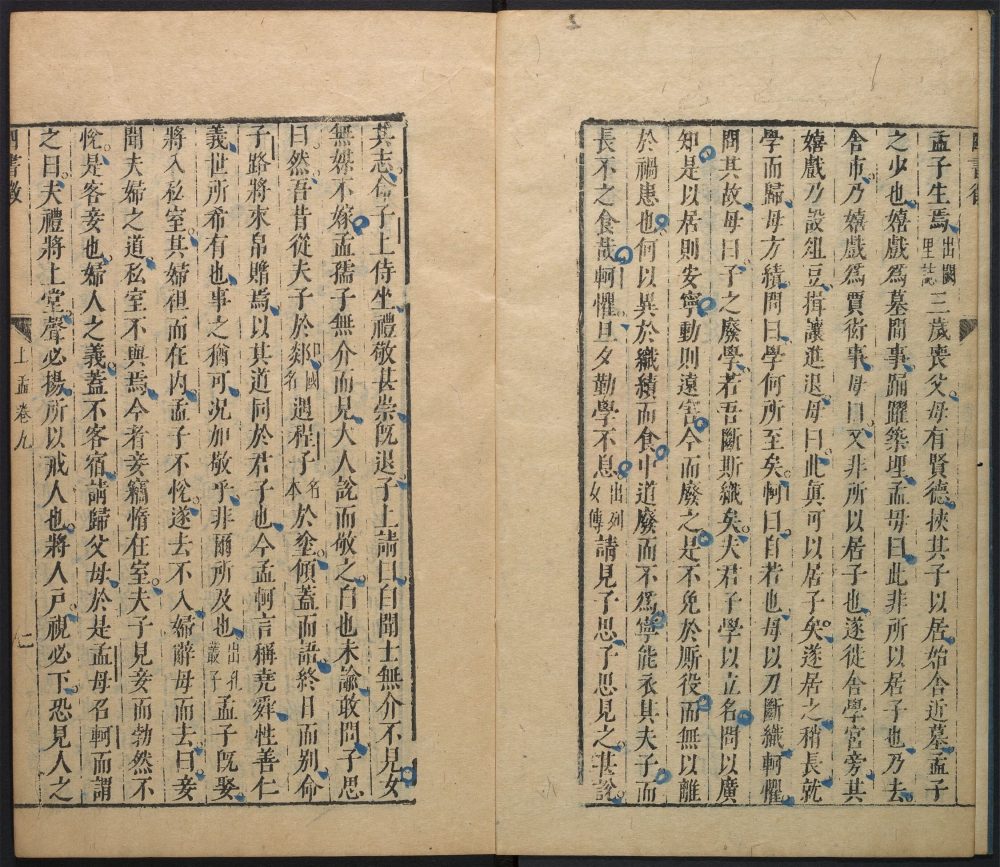 孟子生焉出闕里誌三歲喪父母有賢德挾其子以居始舍近墓孟子
之少也嬉戲爲墓間事踊躍築埋孟母曰此非所以居子也乃去
舍市乃嬉戲爲賈衒事母曰又非所以居子也遂徙舍學宮旁其
嬉戲乃設俎豆揖讓進退母曰此眞可以居子矣遂居之稍長就
學而歸母方績問曰學何所至矣軻曰自若也母以刀斷織軻懼
問其故母曰子之廢學若吾斷斯織矣夫君子學以立名問以廣
知是以居則安寧動則遠害今而廢之是不免於厮役而無以離
於禍患也何以異於織績而食中道廢而不爲寧能衣其夫子而
長不乏食哉軻懼旦夕勤學不息出列女傳請見子思子思見之甚說
其志命子上侍坐禮敬甚崇旣退子上請曰白聞士無介不見女
無媒不嫁孟孺子無介而見大人說而敬之白也未諭敢問子思
曰然吾昔從夫子於郯國名遇程子名本於塗傾蓋而語終日而别命
子路將束帛贈焉以其道同於君子也今孟軻言稱堯舜性善仁
義世所希有也事之猶可況加敬乎非爾所及也出孔叢子孟子旣娶
將入私室其婦袒而在内孟子不悅遂去不入婦辭母而去曰妾
聞夫婦之道私室不與焉今者妾竊惰在室夫子見妾而勃然不
悅是客妾也婦人之義蓋不客宿請歸父母於是孟母召軻而謂
之曰夫禮將上堂聲必揚所以戒人也將入戸視必下恐見人之
上孟卷九